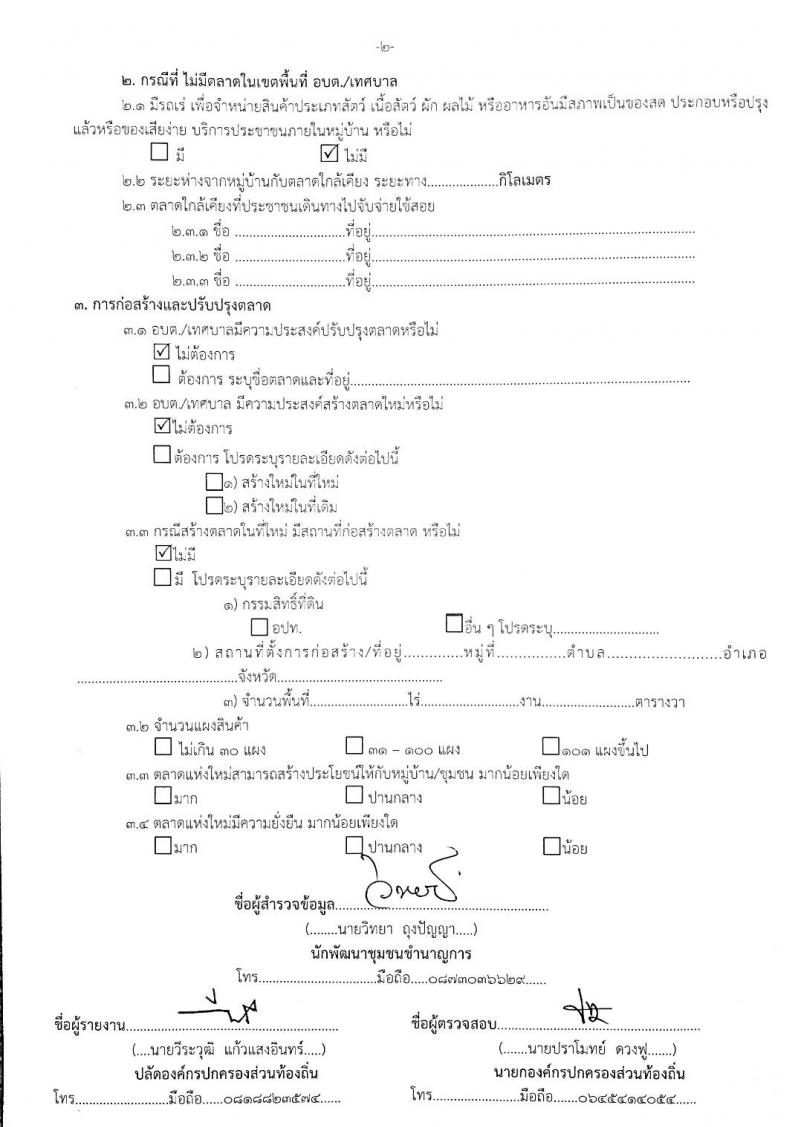 -๒-
๒. กรณีที่ ไม่มีตลาดในเขตพื้นที่ อบต./เทศบาล
๒.๑ มีรถเร่ เพื่อจำหน่ายสินค้าประเภทสัตว์ เนื้อสัตว์ ผัก ผลไม้ หรืออาหารอันมีสภาพเป็นของสด ประกอบหรือปรุง
แล้วหรือของเสียง่าย บริการประชาชนภายในหมู่บ้าน หรือไม่
☐ มี ☑ ไม่มี
๒.๒ ระยะห่างจากหมู่บ้านกับตลาดใกล้เคียง ระยะทาง....................กิโลเมตร
๒.๓ ตลาดใกล้เคียงที่ประชาชนเดินทางไปจับจ่ายใช้สอย
๒.๓.๑ ชื่อ ...............................ที่อยู่..........................................................................................
๒.๓.๒ ชื่อ ...............................ที่อยู่..........................................................................................
๒.๓.๓ ชื่อ ...............................ที่อยู่..........................................................................................
๓. การก่อสร้างและปรับปรุงตลาด
๓.๑ อบต./เทศบาลมีความประสงค์ปรับปรุงตลาดหรือไม่
☑ ไม่ต้องการ
☐ ต้องการ ระบุชื่อตลาดและที่อยู่...............................................................................................
๓.๒ อบต./เทศบาล มีความประสงค์สร้างตลาดใหม่หรือไม่
☑ไม่ต้องการ
☐ต้องการ โปรดระบุรายละเอียดดังต่อไปนี้
☐๑) สร้างใหม่ในที่ใหม่
☐๒) สร้างใหม่ในที่เดิม
๓.๓ กรณีสร้างตลาดในที่ใหม่ มีสถานที่ก่อสร้างตลาด หรือไม่
☑ไม่มี
☐มี โปรดระบุรายละเอียดดังต่อไปนี้
๑) กรรมสิทธิ์ที่ดิน
☐ อปท. ☐อื่น ๆ โปรดระบุ..............................
๒) สถานที่ตั้งการก่อสร้าง/ที่อยู่.............หมู่ที่...............ตำบล.........................อำเภอ
.............................................จังหวัด...............................................
๓) จำนวนพื้นที่............................ไร่............................งาน...........................ตารางวา
๓.๒ จำนวนแผงสินค้า
☐ ไม่เกิน ๓๐ แผง ☐ ๓๑ – ๑๐๐ แผง ☐๑๐๑ แผงขึ้นไป
๓.๓ ตลาดแห่งใหม่สามารถสร้างประโยชน์ให้กับหมู่บ้าน/ชุมชน มากน้อยเพียงใด
☐มาก ☐ ปานกลาง ☐น้อย
๓.๔ ตลาดแห่งใหม่มีความยั่งยืน มากน้อยเพียงใด
☐มาก ☐ ปานกลาง ☐น้อย
ชื่อผู้สำรวจข้อมูล............................................................
(........นายวิทยา ถุงปัญญา.....)
นักพัฒนาชุมชนชำนาญการ
โทร.................................มือถือ.....๐๘๗๓๐๓๖๖๒๙......
ชื่อผู้รายงาน............................................................ ชื่อผู้ตรวจสอบ.........................................................
(....นายวีระวุฒิ แก้วแสงอินทร์.....) (.......นายปราโมทย์ ดวงฟู.......)
ปลัดองค์กรปกครองส่วนท้องถิ่น นายกองค์กรปกครองส่วนท้องถิ่น
โทร..........................มือถือ......๐๘๑๘๘๒๓๕๗๔...... โทร........................มือถือ.......๐๖๔๕๔๑๔๐๕๔......